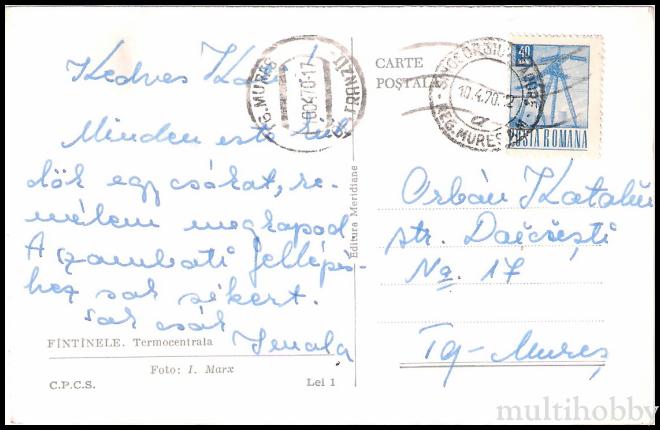 Kedves
Minden este kül-
dök egy csókat, re-
mélem megkapod
A szombati fellépés-
hez sok sikert.
Sok csók
FÎNTÎNELE. Termocentrala
Foto: I. Marx
C.P.C.S.
Lei 1
Editura Meridiane
CARTE
POŞTALĂ
REG. MUREŞ
TÎRNZU
10.4.70.17
10.4.70.12
REG. MUREŞ
a
40
POSTA ROMANA
Orbán Katalin
str.
No. 17
Tg-Mureş
multihobby